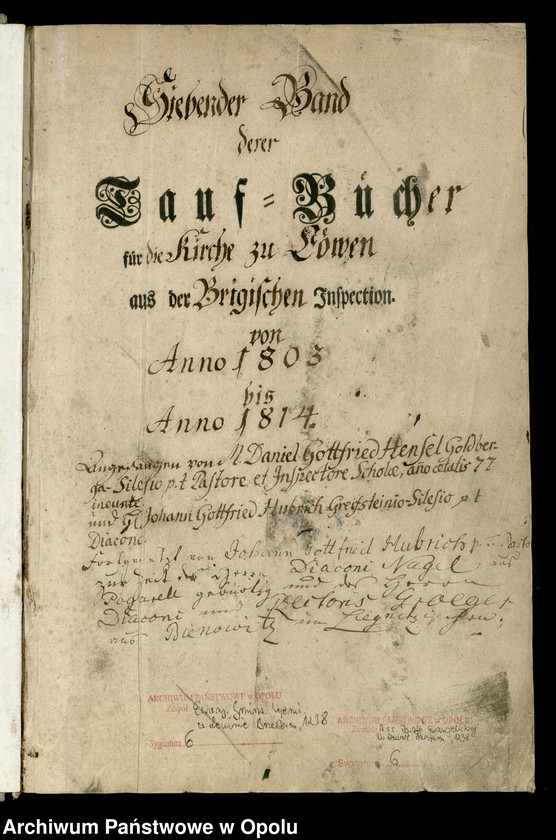 Siebender Band
derer
Tauf=Bücher
für die Kirche zu Löwen
aus der Brigischen Inspection.
von
Anno 1803
bis
Anno 1814.
Angefangen von M. Daniel Gottfried Hensel Goldber-
ga-Silesio p.t Pastore et Inspectore Scholæ, año ætatis 77
ineunte
und Johann Gottfried Hubrich Greifsteinio-Silesio p t
Diacono.
Fortgesetzt von Johann Gottfried Hubrich p. t. Pasto
zur Zeit des Herrn Diaconi Nagel aus
Pogarell gebürtig und des Herrn
Diaconi und Rectoris Groeger
aus Bienowitz im Liegnitzschen.
ARCHIWUM PAŃSTWOWE w OPOLU
Zespół Ewang. Gmina
Brzeskim, 1238
Sygnatura 6
ARCHIWUM PAŃSTWOWE w OPOLU
Zespół
1238
Sygnatura 6
Archiwum Państwowe w Opolu